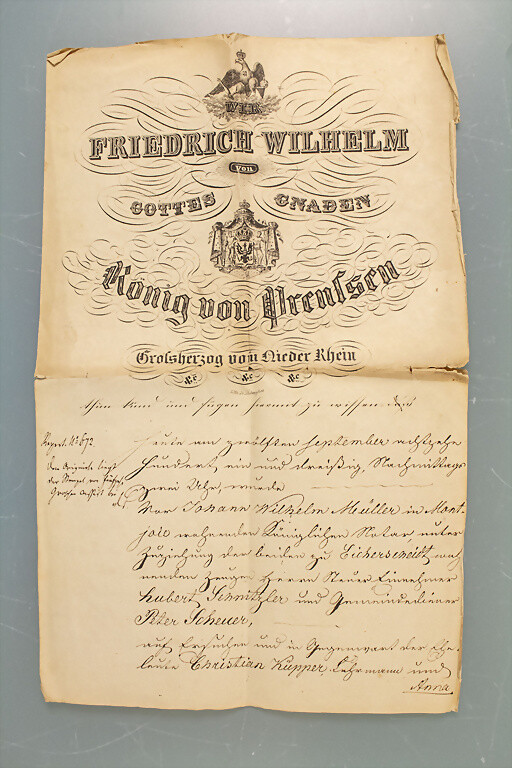 WIR
FRIEDRICH WILHELM
VON
GOTTES GNADEN
König von Preuſsen
Groſsherzog vom Nieder Rhein
&c &c &c
thun kund und fügen hiermit zu wissen daß
Repert. No 672.
Heute am zwölften September achtzehn
hundert ein und dreißig, Nachmittags
zwei Uhr, wurde
Vor Johann Wilhelm Müller in Mont-
joie wohnenden Königlichen Notar unter
Zuziehung der beiden zu Eicherscheidt woh
nenden Zeugen Herrn Steuer Einnehmer
Hubert Schnitzler und Gemeindediener
Peter Scheuer,
auf Ersuchen und in Gegenwart der Ehe-
leute Christian Küpper Fuhrmann und
Anna